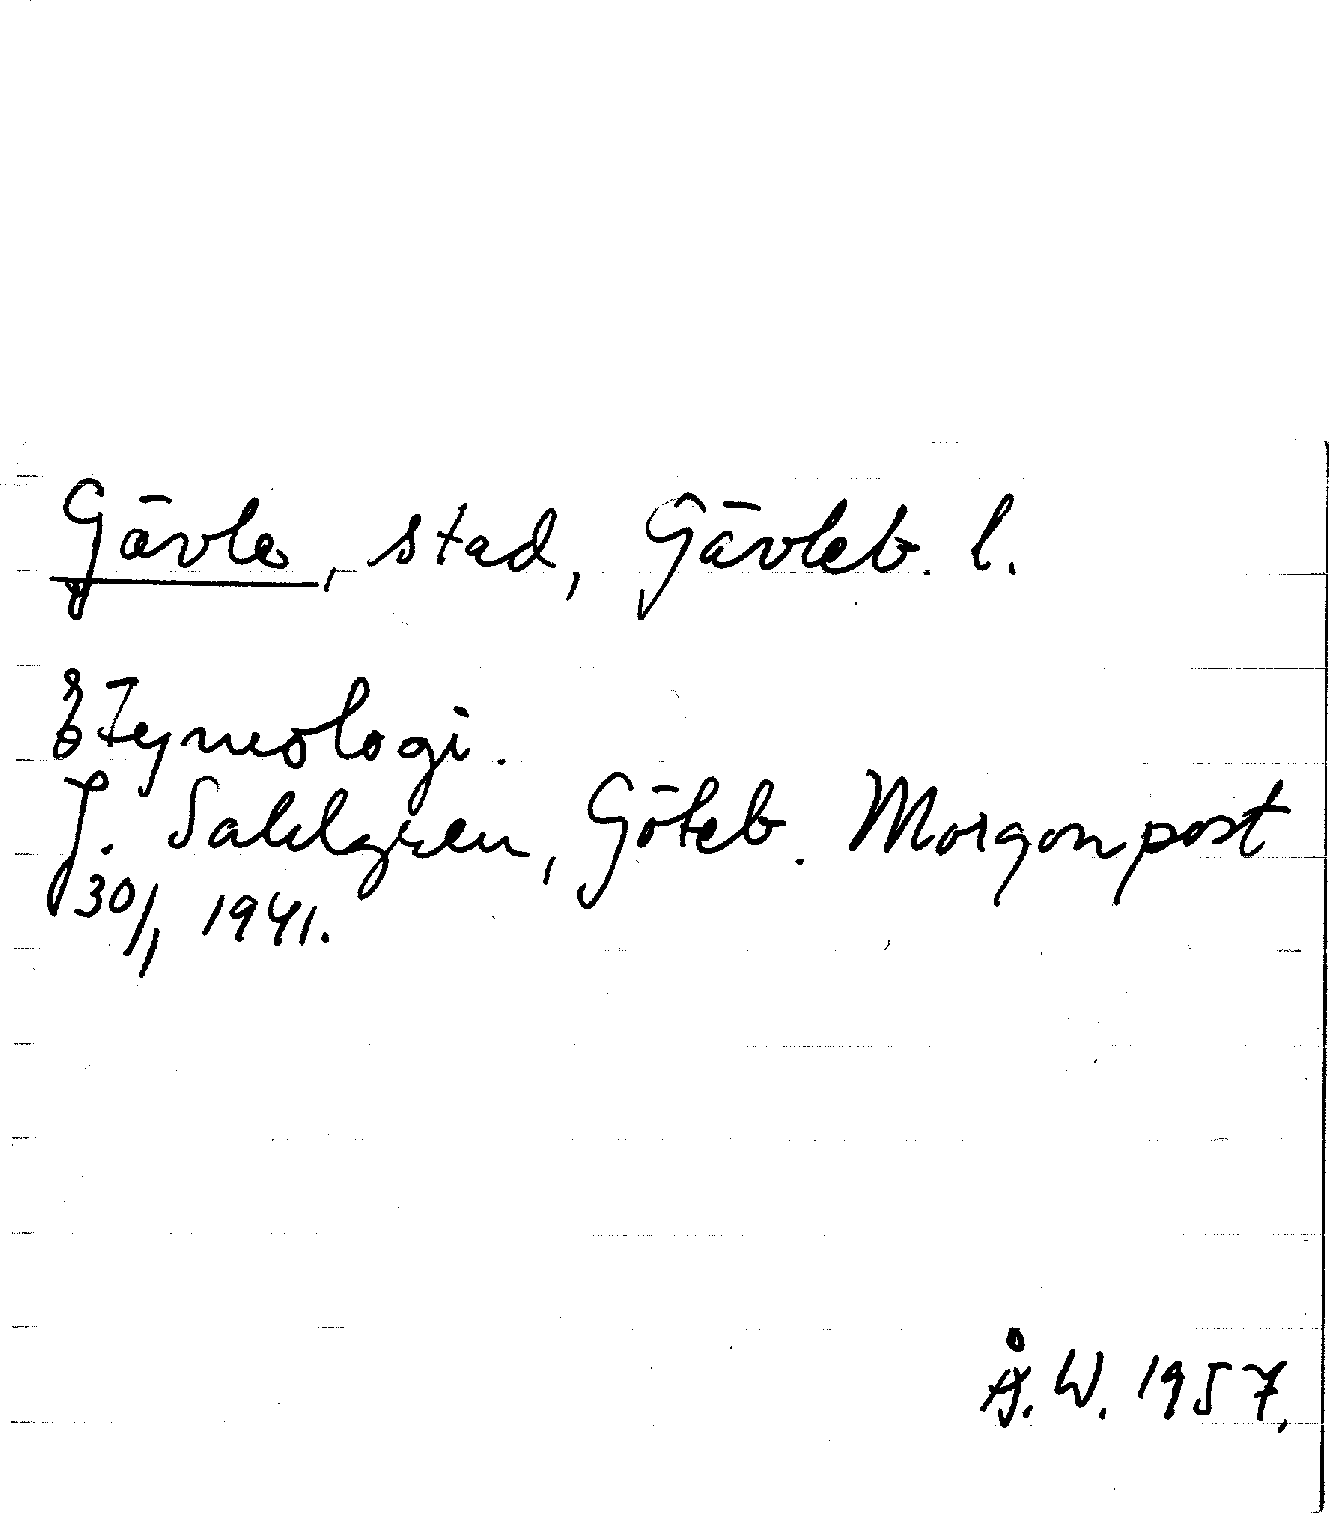 Gävle, stad, Gävleb. l.
Etymologi.
J. Sahlgren, Göteb. Morgonpost
30/1 1941.
Å. W. 1957.